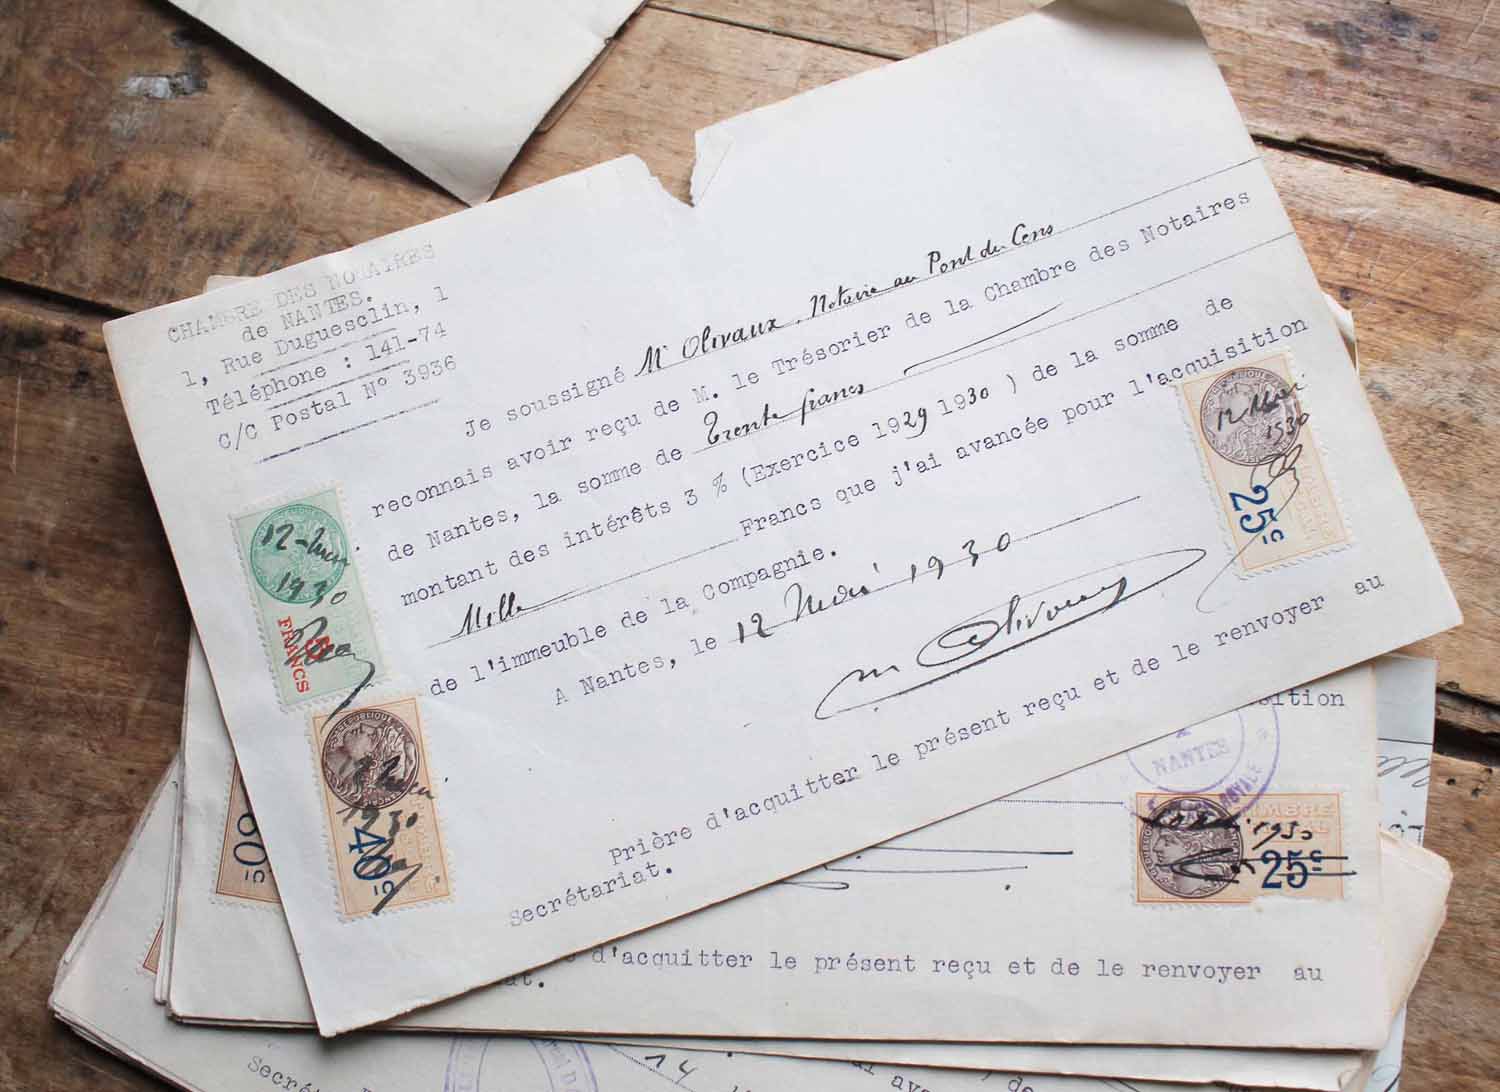 CHAMBRE DES NOTAIRES
de NANTES.
1, Rue Duguesclin, 1
Téléphone : 141-74
C/C Postal N° 3936
Je soussigné Mr Olivaux, Notaire au Pont du Cens
reconnais avoir reçu de M. le Trésorier de la Chambre des Notaires
de Nantes, la somme de Trente francs
montant des intérêts 3 % (Exercice 1929 1930 ) de la somme de
Mille Francs que j'ai avancée pour l'acquisition
de l'immeuble de la Compagnie.
A Nantes, le 12 Mai 1930
Olivaux
Prière d'acquitter le présent reçu et de le renvoyer au
Secrétariat.
12 Mai
1930
5
FRANCS
40c
1930
12 Mai
1930
25c
50c
sition
NANTES
1930
25c
d'acquitter le présent reçu et de le renvoyer au
at.
Secré
14